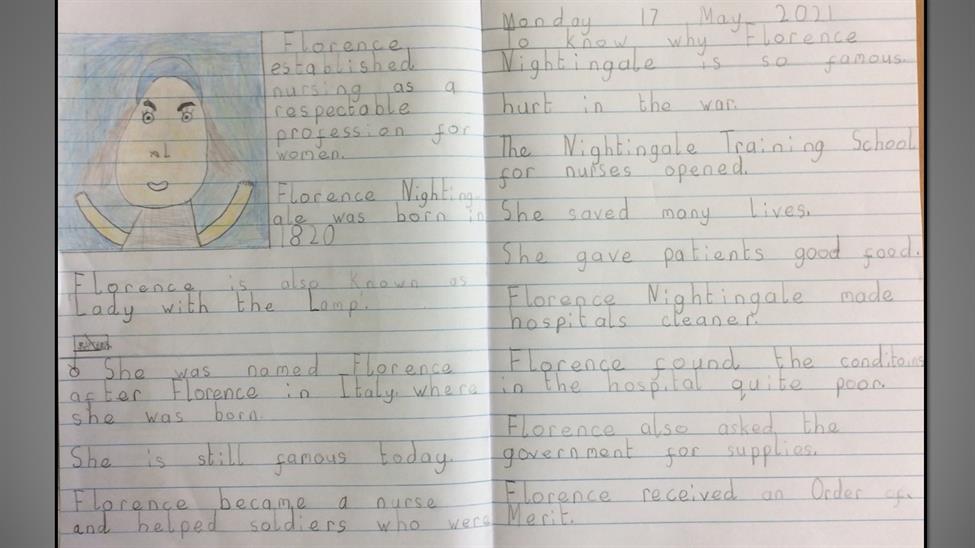 Florence
established
nursing as a
respectable
profession for
women.
Florence Nighting-
ale was born in
1820
Florence is also known as
Lady with the Lamp'.
She was named Florence
after Florence in Italy, where
she was born.
She is still famous today.
Florence became a nurse
and helped soldiers who were
Monday 17 May 2021
To know why Florence
Nightingale is so famous.
hurt in the war.
The Nightingale Training School
for nurses opened.
She saved many lives.
She gave patients good food.
Florence Nightingale made
hospitals cleaner.
Florence found the conditoins
in the hospital quite poor.
Florence also asked the
government for supplies.
Florence received an Order of
Merit.